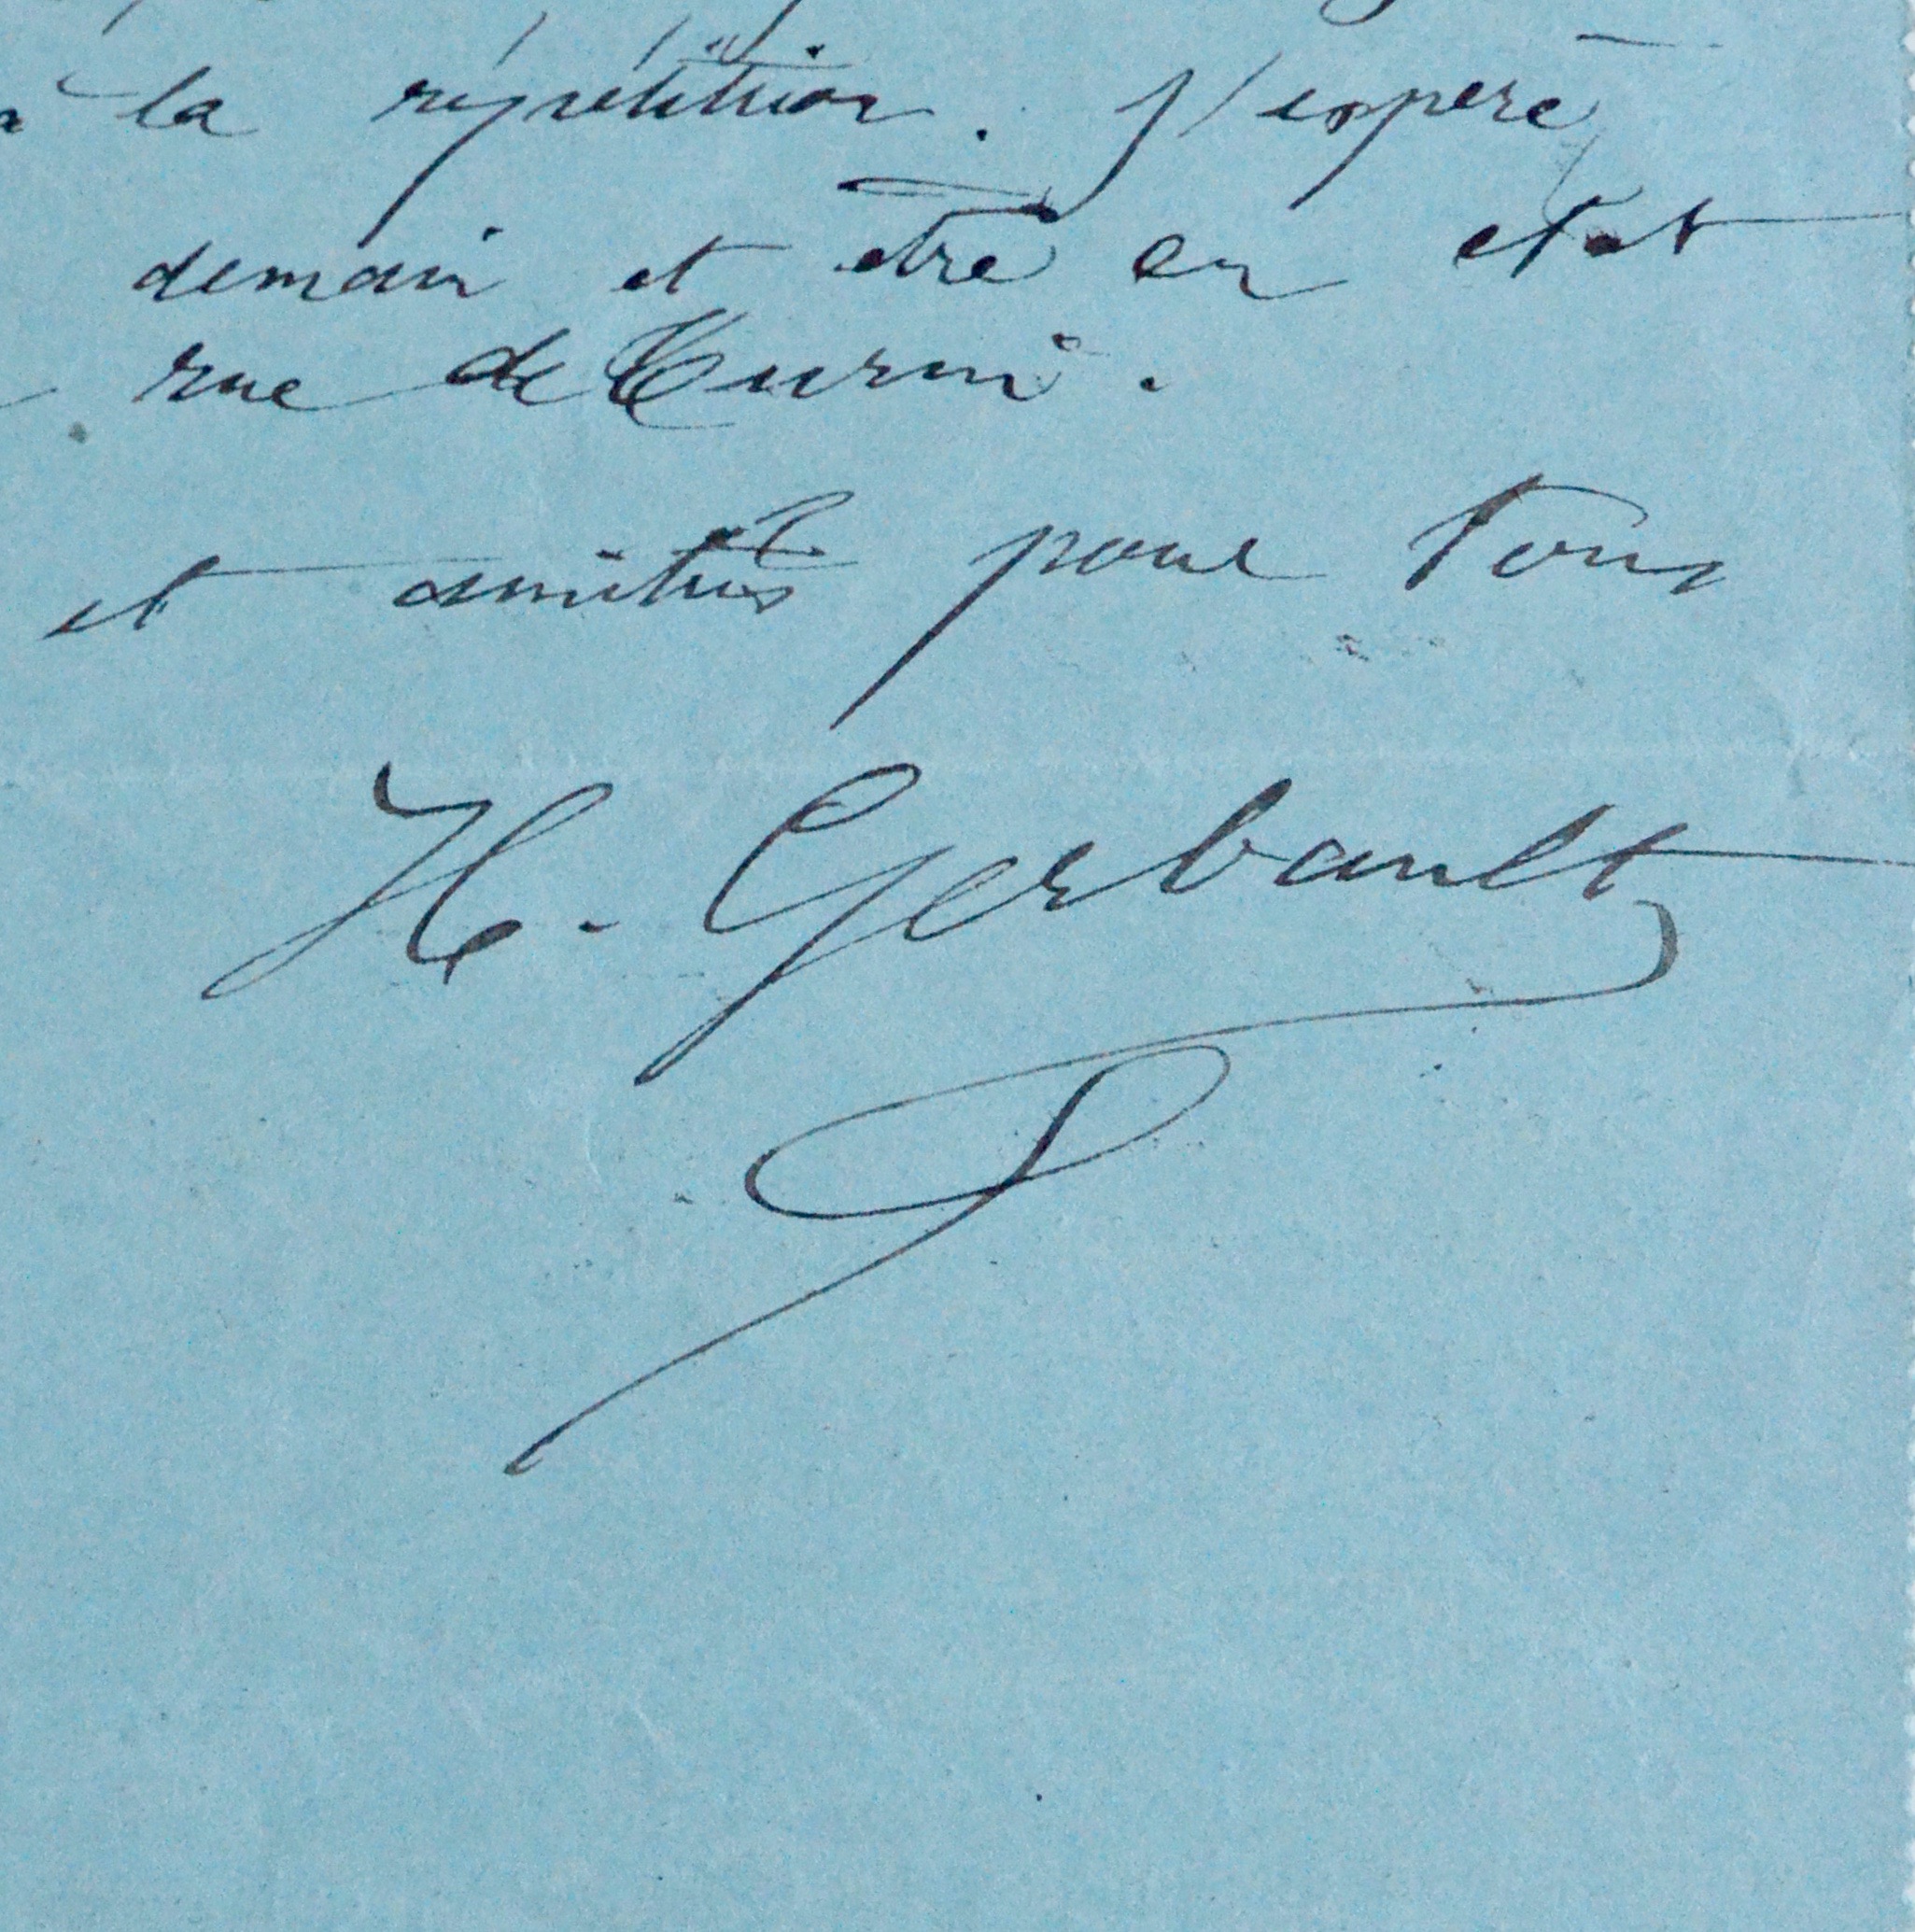 à la répétition. J'espère
demain et être en état
rue de Turin.
et amitiés pour tous
H. Gerbault